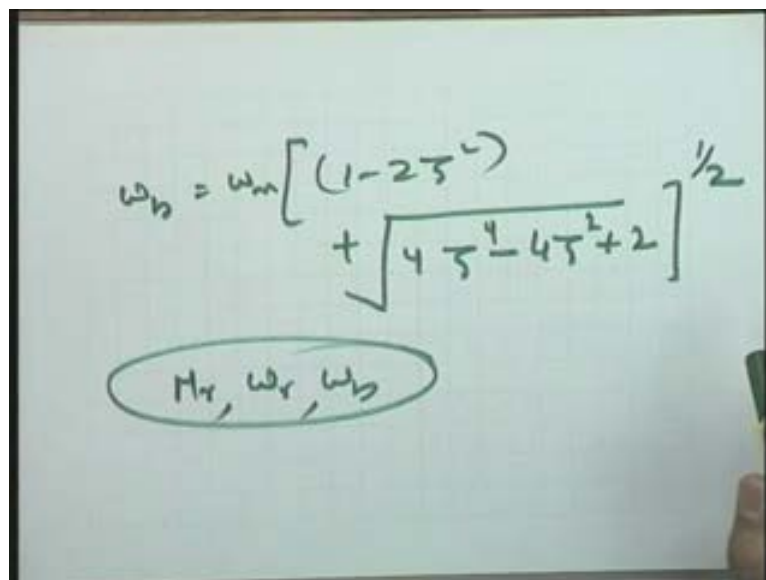 ω_b = ω_n [ (1 - 2ζ²)
+ √(4ζ⁴ - 4ζ² + 2) ]^{1/2}
M_r, ω_r, ω_b